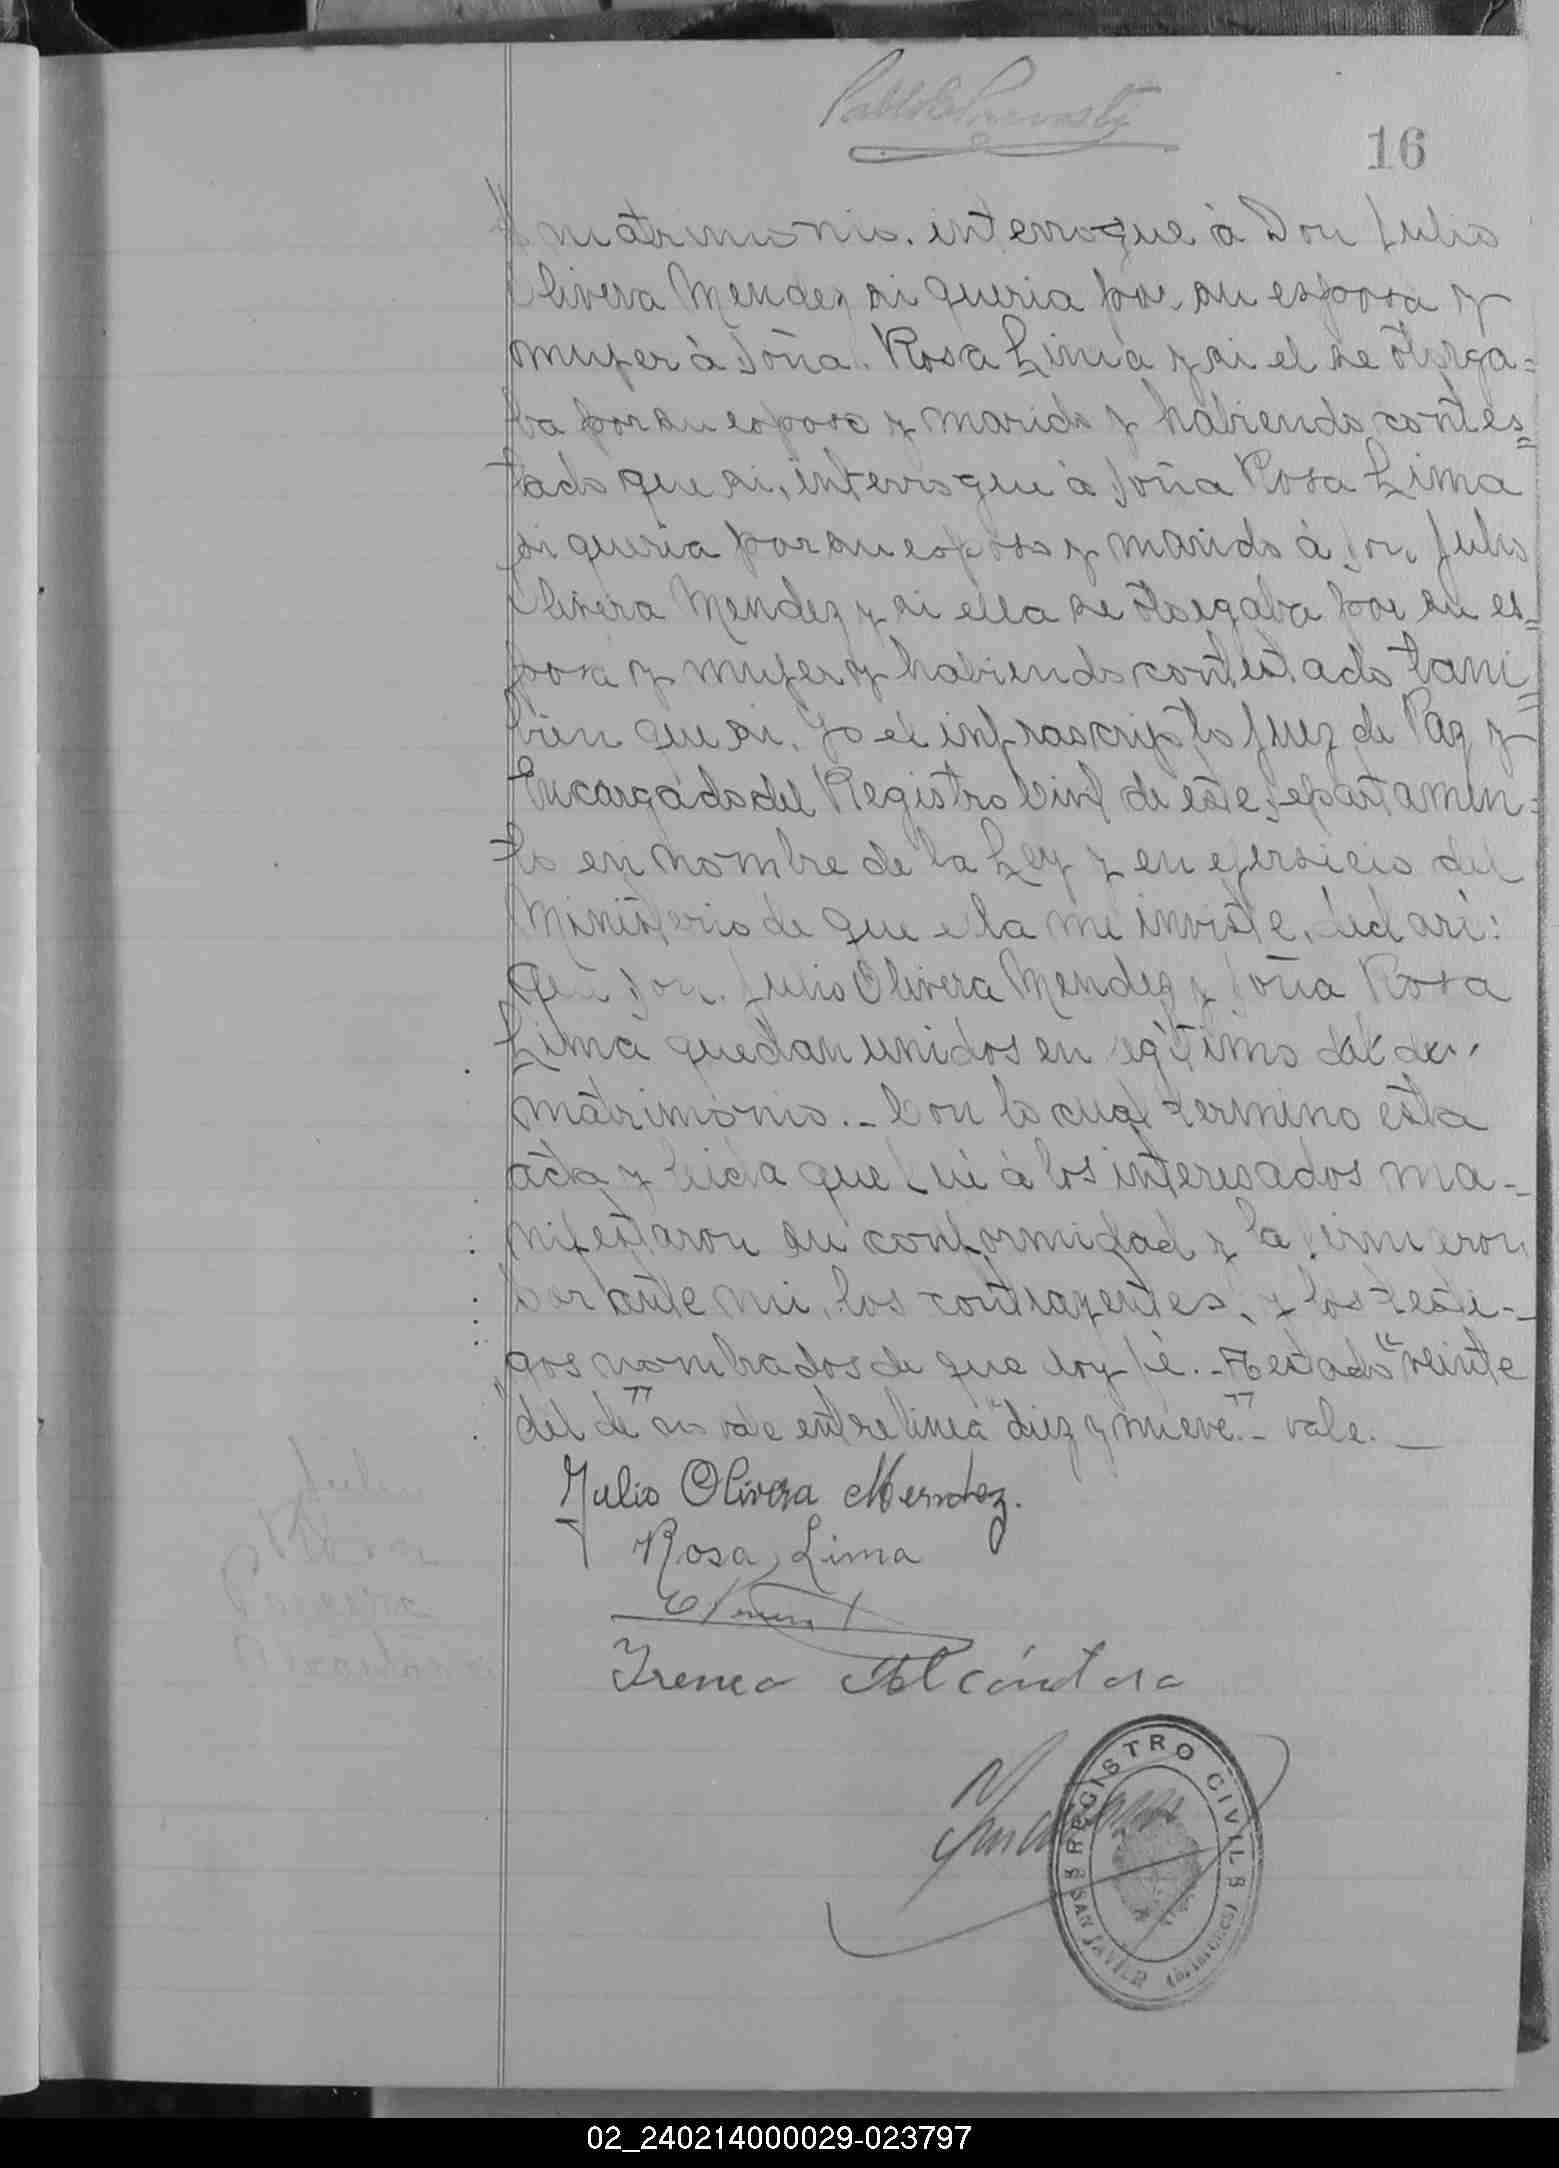 16
matrimonio. interrogue á Don Julio
Olivera Mendez si queria por su esposa y
mujer á Doña. Rosa Lima y si el se otorga=
ba por su esposo y marido y habiendo contes=
tado que si, interrogue á Doña Rosa Lima
si queria por su esposo y marido á Don Julio
Olivera Mendez y si ella se otorgaba por su es=
posa y mujer y habiendo contestado tam=
bien que si. Yo el infrascripto Juez de Paz y
Encargado del Registro Civil de este Departamen=
to en nombre de la Ley y en ejersicio del
Ministerio de que ella me inviste, declaré:
que Don. Julio Olivera Mendez y Doña Rosa
Lima quedan unidos en legitimo
matrimonio._ Con lo cual termino esta
acta y leida que fué á los interesados ma-
nifestaron su conformidad y la firmaron
por ante mi, los contrayentes, y los testi-
gos nombrados de que doy fé._ Testado "veinte
"del de" no vale entre linea "diez y nueve"_ vale._
Julio Olivera Mendez.
Rosa Lima
Ireneo Alcántara
REGISTRO CIVIL
SAN JAVIER (MISIONES)
02_240214000029-023797